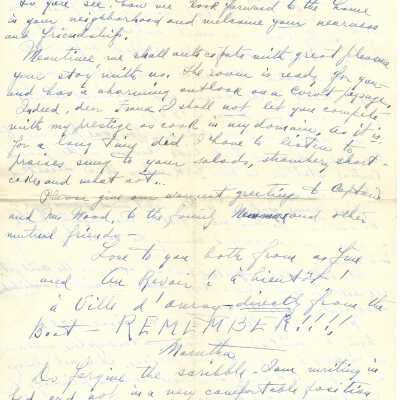 So you see, how we look forward to the home
in your neighborhood and welcome your nearness
and friendship.
Meantime, we shall anticipate with great pleasure
your stay with us. The room is ready for you
and has a charming outlook on a Corot paysage.
Indeed, dear Frona, I shall not let you compete
with my prestige as cook in my domain. As it is
for a long time did I have to listen to
praises sung to your salads, strawberry short-
cakes and what not...
Please give our warmest greeting to Captain
and Mrs Wood, to the family and other
mutual friends -
Love to you both from us five
and Au Revoir! à bientôt!
à Ville d'Avray - directly from the
Boat - REMEMBER!!!!
Marutha
Do forgive the scribble - I am writing in
bed and not in a very comfortable position